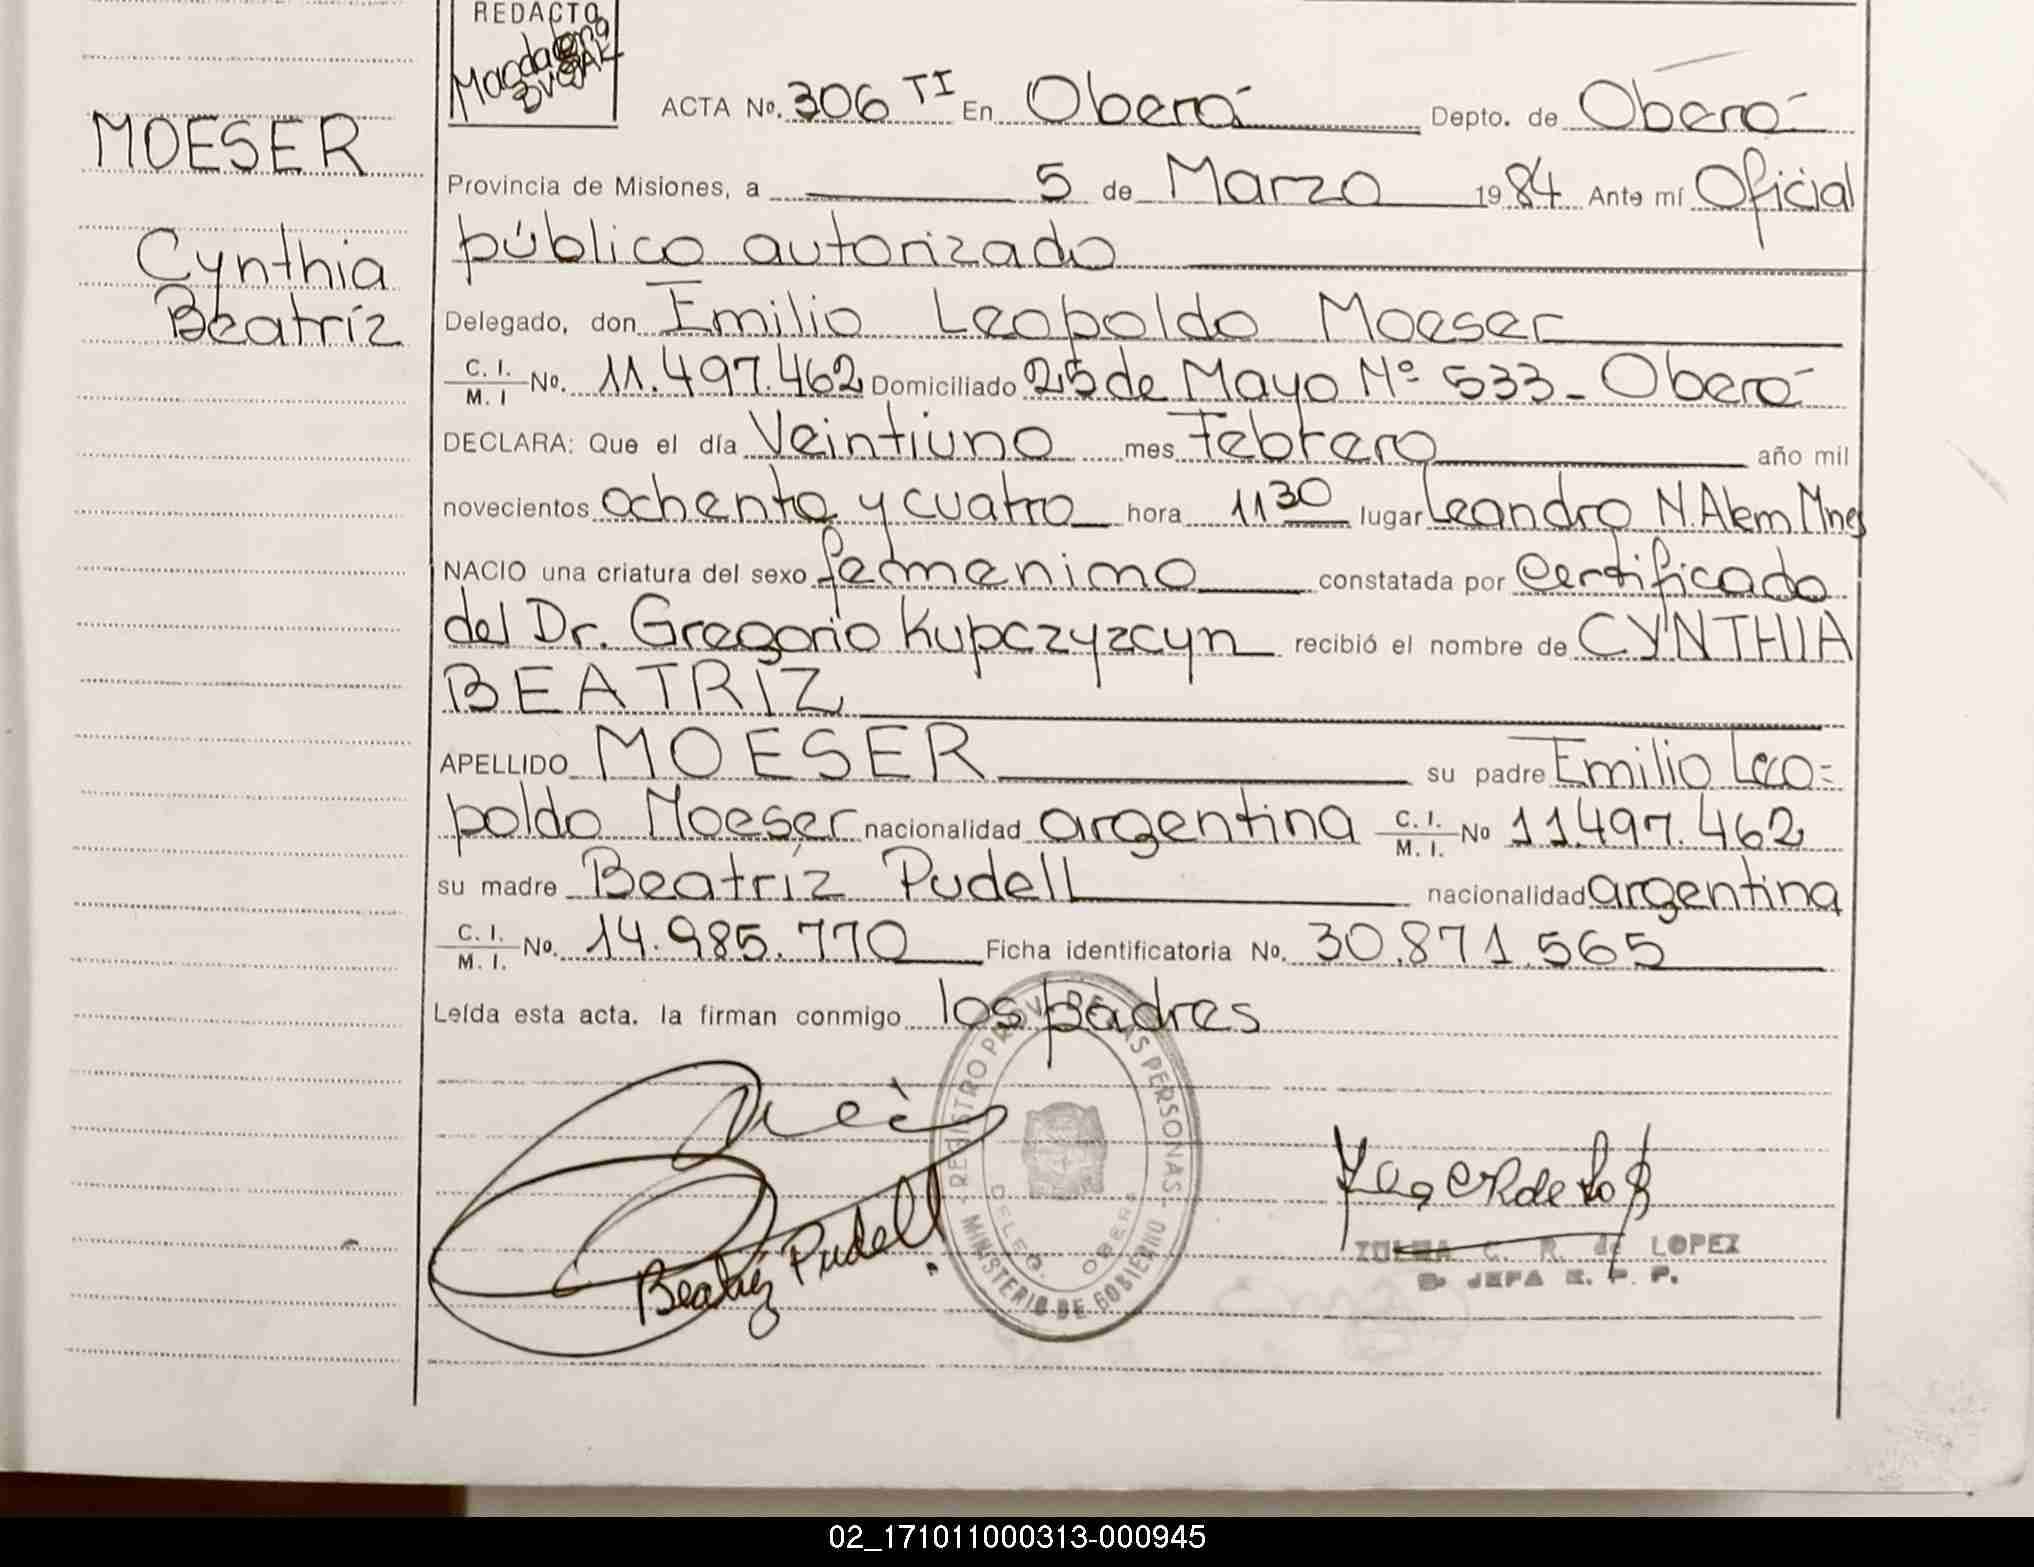 REDACTO
Magdalena
ACTA No. 306 TI En Oberá Depto. de Oberá
MOESER
Provincia de Misiones, a 5 de Marzo 1984 Ante mí Oficial
público autorizado
Cynthia
Beatríz
Delegado, don Emilio Leopoldo Moeser
C. I. / M. I No. 11.497.462 Domiciliado 25 de Mayo Nº 533 - Oberá
DECLARA: Que el día Veintiuno mes Febrero año mil
novecientos ochenta y cuatro hora 11 30 lugar Leandro N. Alem Mnes
NACIO una criatura del sexo femenino constatada por Certificado
del Dr. Gregorio Kupczyzcyn recibió el nombre de CYNTHIA
BEATRÍZ
APELLIDO MOESER su padre Emilio Leo=
poldo Moeser nacionalidad argentina C. I. / M. I. No 11.497.462
su madre Beatríz Pudell nacionalidad argentina
C. I. / M. I. No. 14.985.770 Ficha identificatoria No. 30.871.565
Leída esta acta, la firman conmigo los padres
REGISTRO PROV. DE LAS PERSONAS
DELEG. OBERA
MINISTERIO DE GOBIERNO
Beatriz Pudell
ZULMA C. R. de LOPEZ
JEFA R. P. P.
02_171011000313-000945